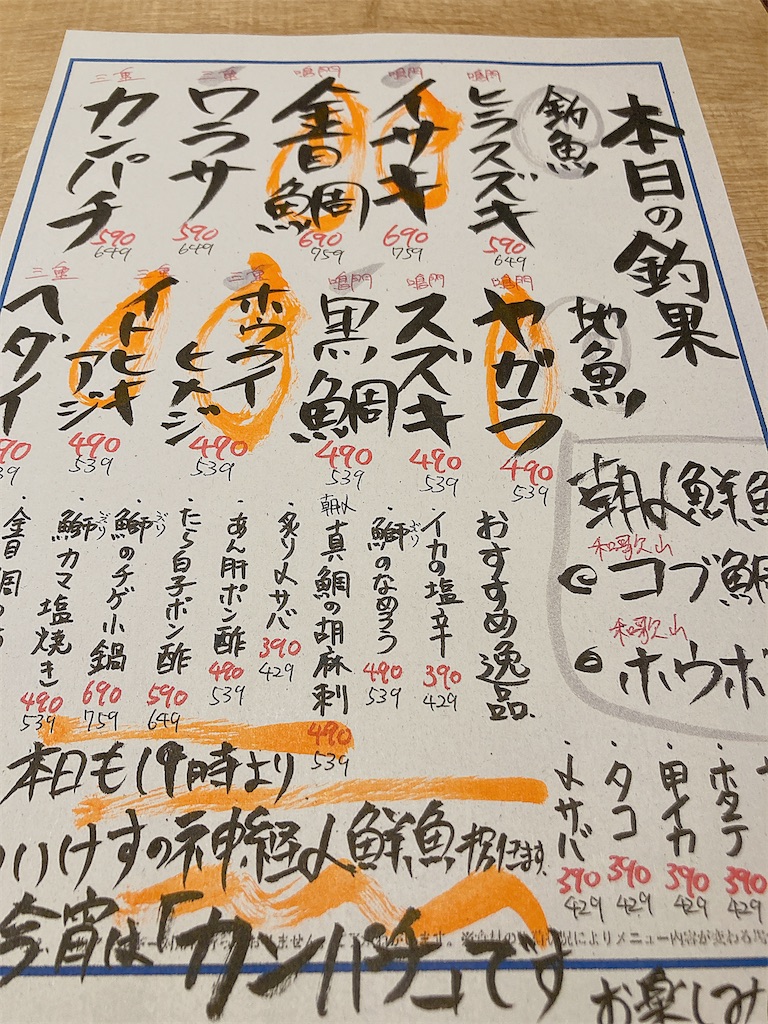 本日の釣果
釣魚
鳴門
ヒラスズキ
590
649
鳴門
イサキ
690
759
鳴門
金目鯛
690
759
三重
ワラサ
590
649
三重
カンパチ
590
649
地魚
鳴門
ヤガラ
490
539
鳴門
スズキ
490
539
鳴門
黒鯛
490
539
三重
ホウライ
ヒメジ
490
539
三重
イトヒキ
アジ
490
539
三重
ヘダイ
90
39
朝〆鮮魚
和歌山
コブ鯛
和歌山
ホウボ
おすすめ逸品
・イカの塩辛
390
429
・鰤のなめろう
ぶり
490
539
朝〆
真鯛の胡麻刺
490
539
・炙り〆サバ
390
429
・あん肝ポン酢
490
539
・たら白子ポン酢
590
649
・鰤のチゲ小鍋
ぶり
690
759
・鰤カマ塩焼き
ぶり
490
539
・金目鯛の
・ホタテ
390
429
・甲イカ
390
429
・タコ
390
429
・〆サバ
390
429
本日も19時より
いけすの神経〆鮮魚捌きます、
今宵は「カンパチ」です
によりメニュー内容が変わる
お楽しみ